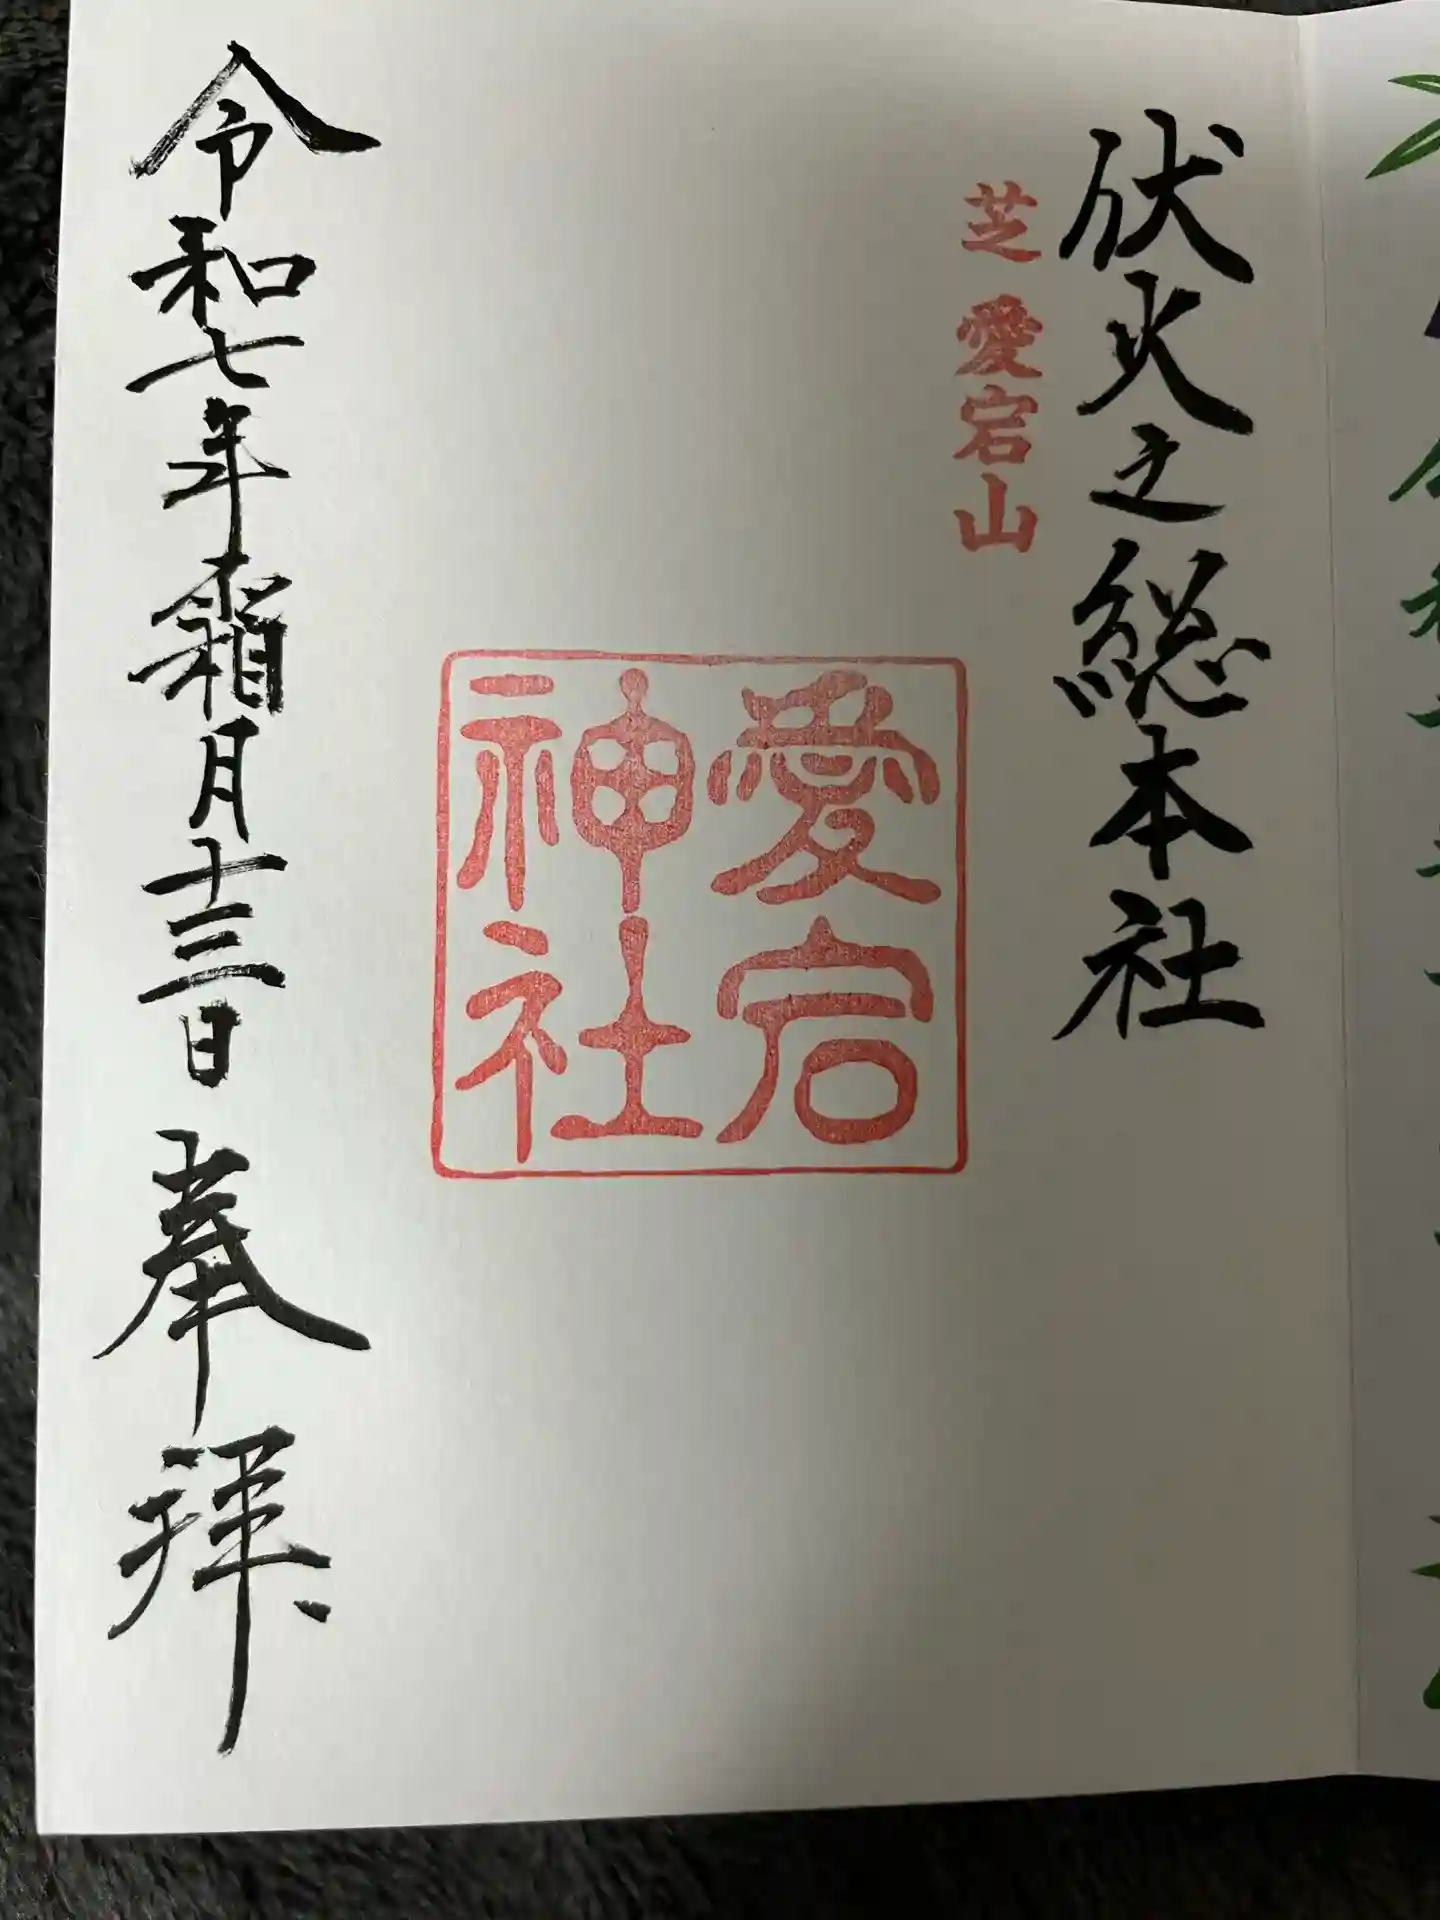 伏火之総本社
芝 愛宕山
愛宕
神社
令和七年霜月十三日 奉拝